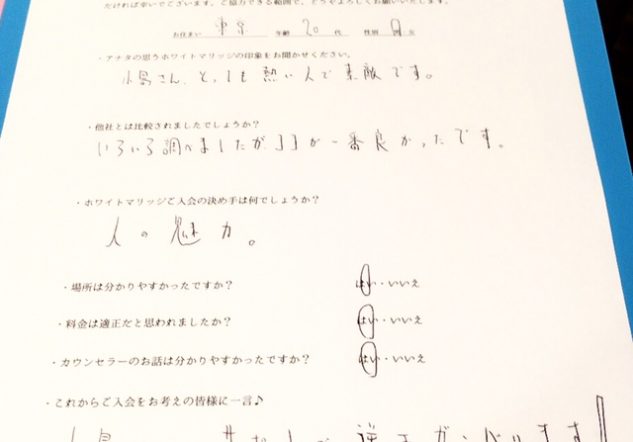 だければ幸いでございます。ご協力できる範囲で、どうぞよろしくお願いいたします。
お住まい 東京 年齢 20 代 性別 男 女
・アナタの思うホワイトマリッジの印象をお聞かせください。
小島さん、とっても熱い人で素敵です。
・他社とは比較されましたでしょうか?
いろいろ調べましたがココが一番良かったです。
・ホワイトマリッジご入会の決め手は何でしょうか?
人の魅力。
・場所は分かりやすかったですか? はい・いいえ
・料金は適正だと思われましたか? はい・いいえ
・カウンセラーのお話は分かりやすかったですか? はい・いいえ
・これからご入会をお考えの皆様に一言♪